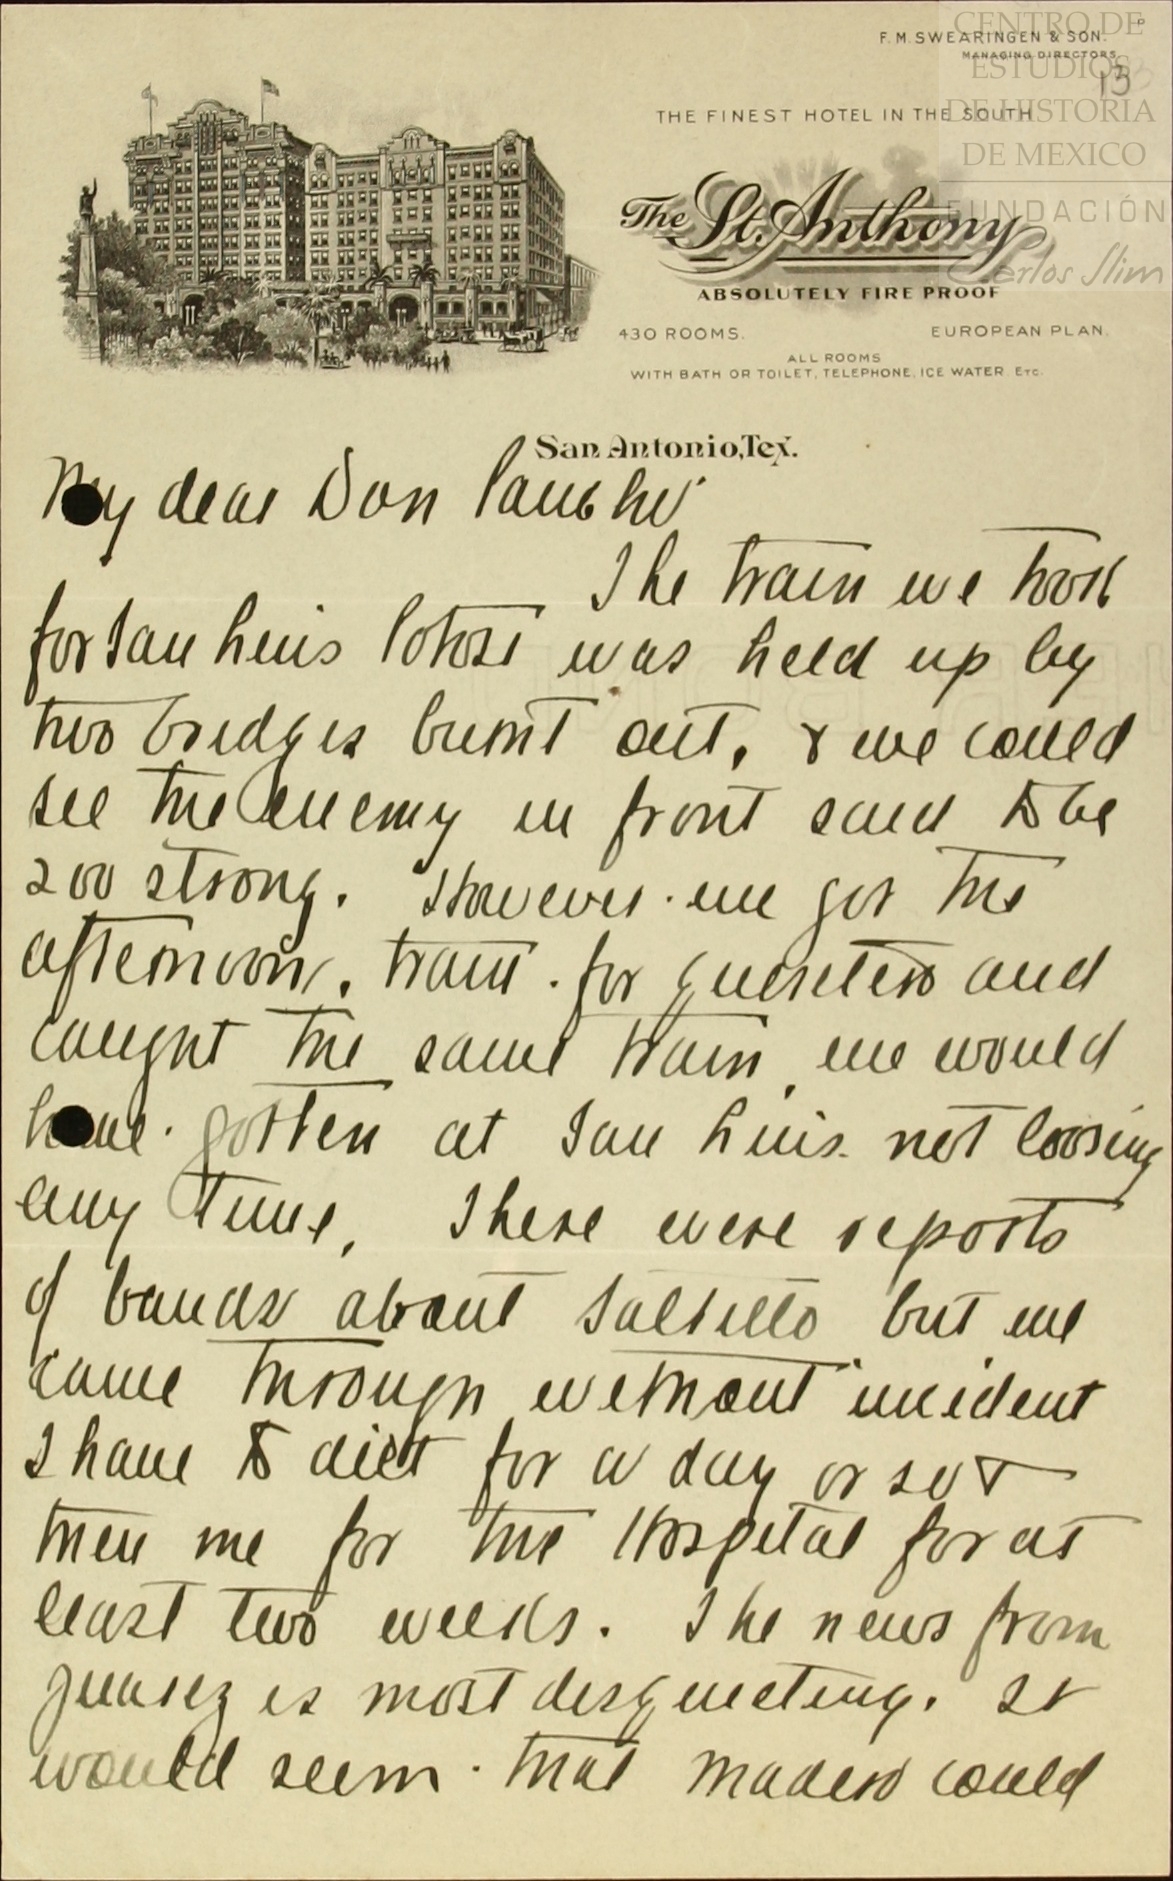 F. M. SWEARINGEN & SON.
MANAGING DIRECTORS.
CENTRO DE
ESTUDIOS
DE HISTORIA
DE MEXICO
FUNDACIÓN
Carlos Slim
13
THE FINEST HOTEL IN THE SOUTH
The St. Anthony
ABSOLUTELY FIRE PROOF
430 ROOMS. EUROPEAN PLAN.
ALL ROOMS
WITH BATH OR TOILET, TELEPHONE, ICE WATER ETC.
San Antonio, Tex.
My dear Don Pancho
The train we took
for San Luis Potosi was held up by
two bridges burnt out, & we could
see the enemy in front said to be
200 strong. However we got the
afternoon train for Queretero and
caught the same train we would
have gotten at San Luis not loosing
any time. There were reports
of bands about Saltillo but we
came through without incident
I have to diet for a day or so &
then me for the Hospital for at
least two weeks. The news from
Juarez is most disquieting. It
would seem that Madero could